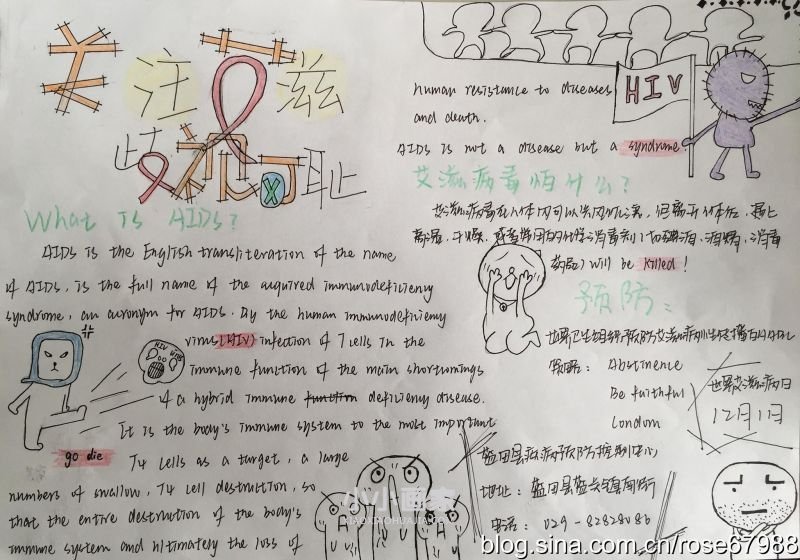 关注艾滋
歧视可耻
What Is AIDS?
AIDS is the English transliteration of the name
of AIDS, is the full name of the aquired immunodeficiency
syndrome, an acronym for AIDS. By the human immunodeficiency
virus (HIV) infection of T cells in the
immune function of the main shortcomings
of a hybrid immune function deficiency disease.
It is the body's immune system to the most important
T4 cells as a target, a large
numbers of swallow, T4 cell destruction, so
that the entire destruction of the body's
immune system and ultimately the loss of
go die
HIV
HIV
human resistance to diseases
and death.
AIDS is not a disease but a syndrome
艾滋病毒怕什么?
艾滋病毒在人体内可以 但离开人体后,遇上
高温、干燥 消毒剂 酒精、消毒
will be killed!
预防:
世界卫生组织预防艾滋病
策略: Abstinence
Be faithful
Condom
世界艾滋病日
12月1日
蓝田县疾病预防控制中心
地址:蓝田县蓝关镇南街
电话: 029-82828086
小小画家
XIAOXIAOHUAJIA
blog.sina.com.cn/rose67988